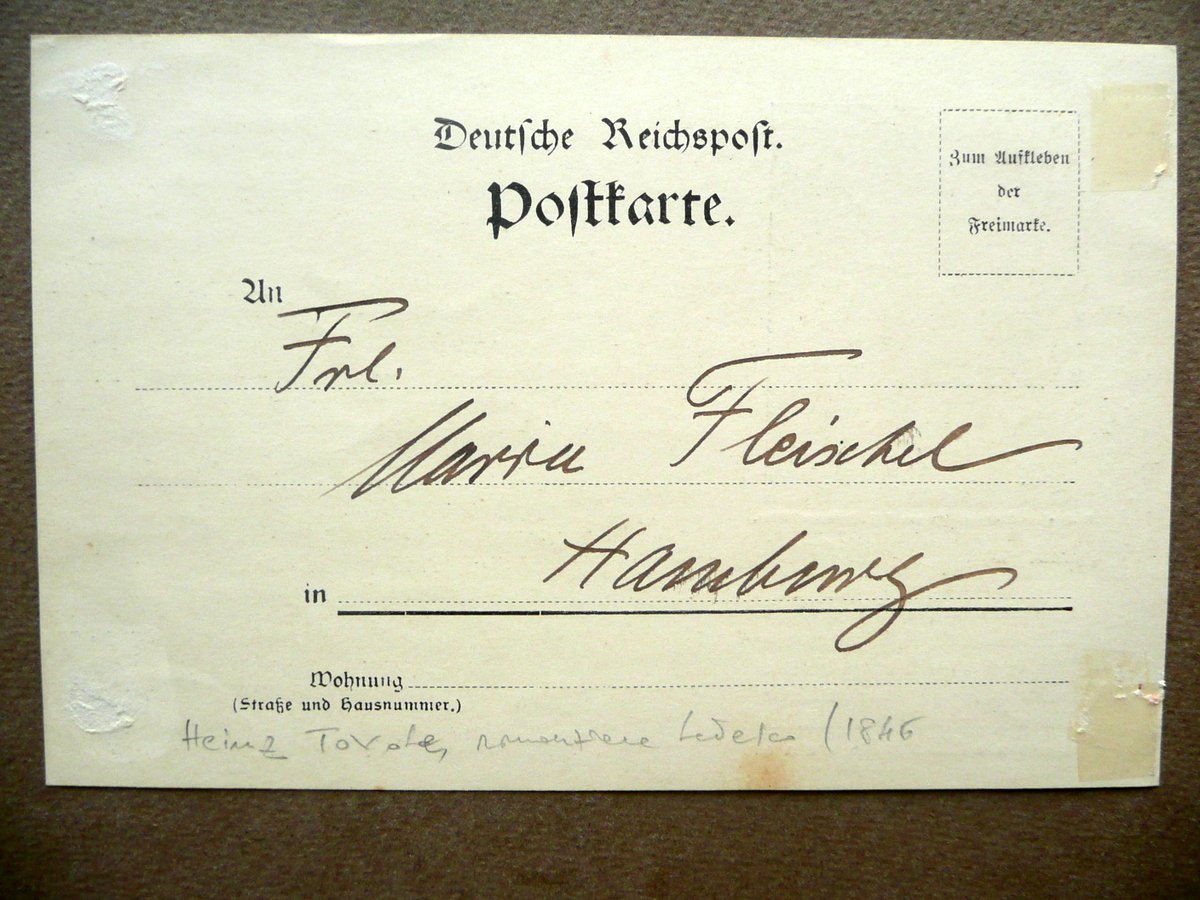 Deutsche Reichspost.
Postkarte.
Zum Aufkleben
der
Freimarke.
An
Frl.
Maria Fleischel
in Hamburg
Wohnung
(Straße und Hausnummer.)
Heinz Tovote, (1846